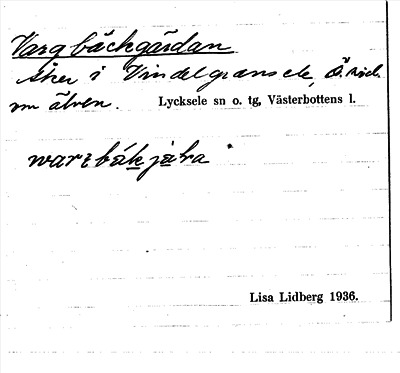 Vargbäckgärdan
Åker i Vindelgransele, Ö. sid.
om älven. Lycksele sn o. tg, Västerbottens l.
Lisa Lidberg 1936.